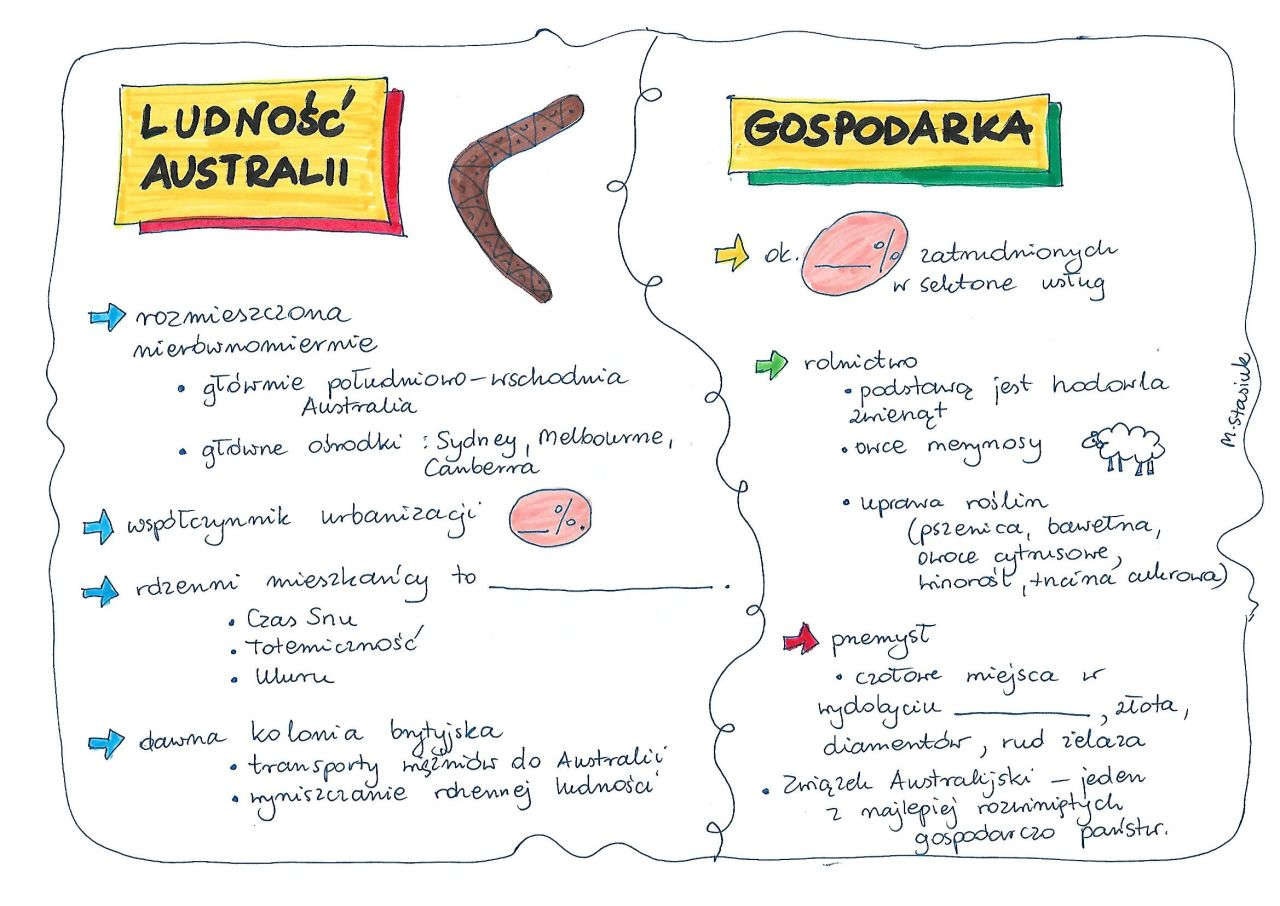 LUDNOŚĆ
AUSTRALII
rozmieszczona
nierównomiernie
• głównie południowo-wschodnia
Australia
• główne ośrodki : Sydney, Melbourne,
Canberra
współczynnik urbanizacji __%.
rdzenni mieszkańcy to ____________.
• Czas Snu
• Totemiczność
• Uluru
dawna kolonia brytyjska
• transporty więźniów do Australii
• wyniszczanie rdzennej ludności
GOSPODARKA
ok. ___% zatrudnionych
w sektorze usług
rolnictwo
• podstawą jest hodowla
zwierząt
• owce merynosy
• uprawa roślin
(pszenica, bawełna,
owoce cytrusowe,
winorośl, trzcina cukrowa)
przemysł
• czołowe miejsca w
wydobyciu ________, złota,
diamentów, rud żelaza
• Związek Australijski – jeden
z najlepiej rozwiniętych
gospodarczo państw.
M. Stasiuk